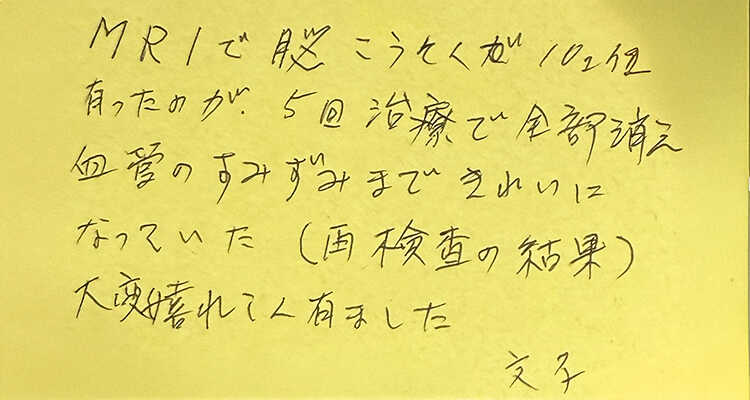 MRIで脳こうそくが10ヶ位
有ったのが、5回治療で全部消え
血管のすみずみまできれいに
なっていた（再検査の結果）
大変嬉れてん有ました
文子